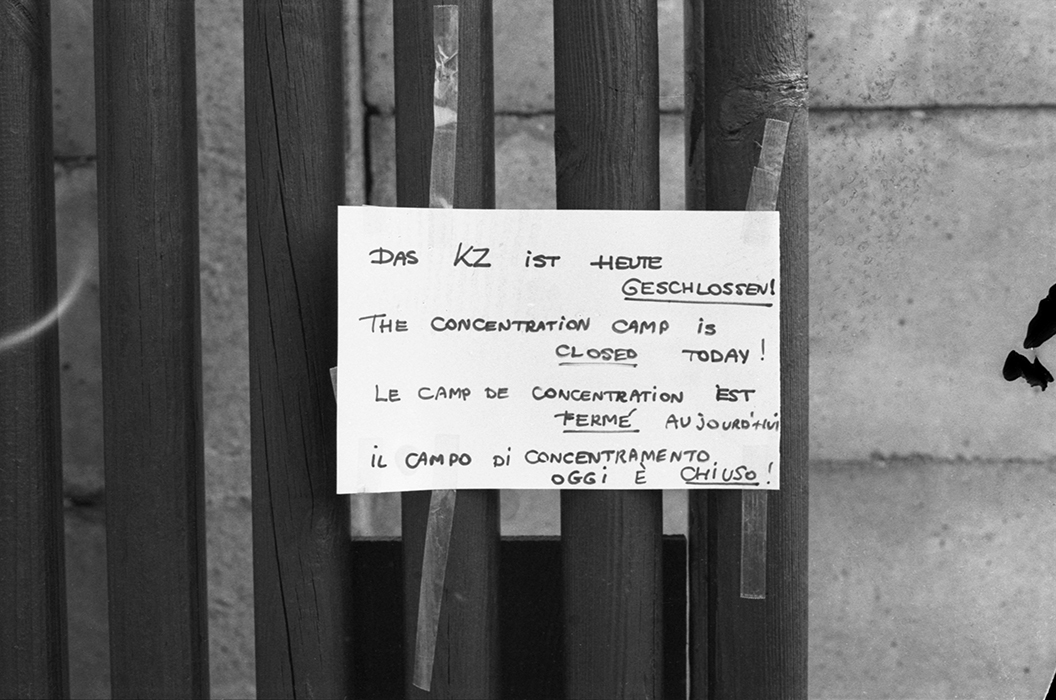 DAS KZ iST HEUTE
GESCHLOSSEN!
THE CONCENTRATION CAMP iS
CLOSED TODAY!
LE CAMP DE CONCENTRATION EST
FERMÉ AUJOURD'HUi
iL CAMPO Di CONCENTRAMENTO
OGGi È CHiUSO!